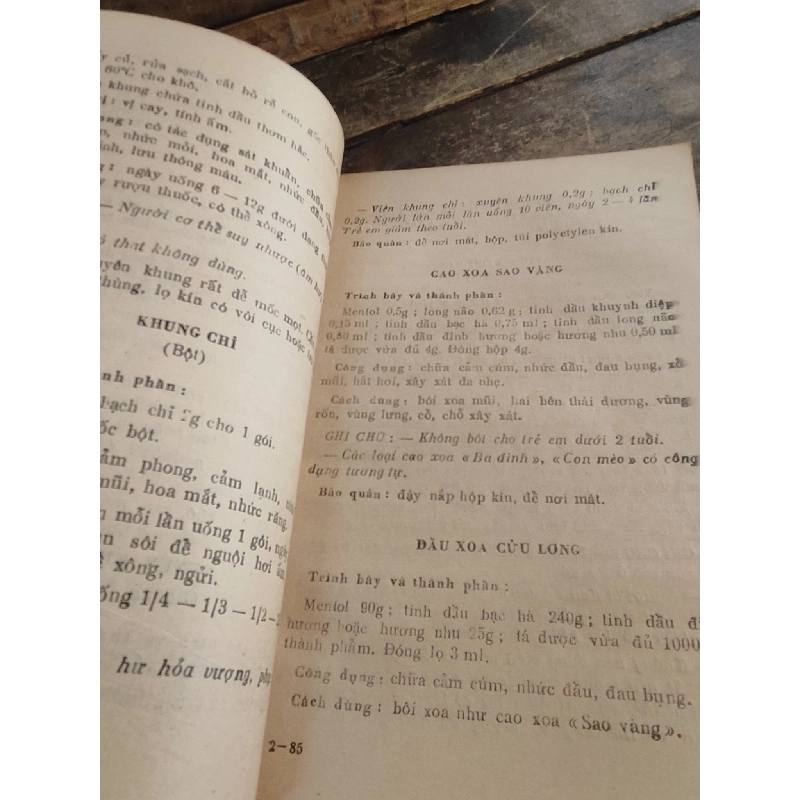 củ, rửa sạch, cắt bỏ rễ con,
60°C cho khô.
khung chứa tinh dầu thơm hắc.
: vị cay, tính ấm.
: có tác dụng sát khuẩn, chữa
nhức mỏi, hoa mắt, nhức đầu,
lưu thông máu.
: ngày uống 6 — 12g dưới dạng
rượu thuốc, có thể xông.
— Người cơ thể suy nhược (âm hư
that không dùng.
khung rất dễ mốc mọt.
thùng, lọ kín có vôi cục hoặc
KHUNG CHỈ
(Bột)
phần :
bạch chỉ 2g cho 1 gói.
bột.
cảm phong, cảm lạnh,
mũi, hoa mắt, nhức răng.
mỗi lần uống 1 gói,
sôi để nguội hơi
xông, ngửi.
uống 1/4 — 1/3 — 1/2
hư hỏa vượng,
— Viên khung chỉ : xuyên khung 0,2g ; bạch chỉ
0,2g. Người lớn mỗi lần uống 10 viên, ngày 2 — 4 lần
Trẻ em giảm theo tuổi.
Bảo quản : để nơi mát, hộp, túi polyetylen kín.
CAO XOA SAO VÀNG
Trình bày và thành phần :
Mentol 0,5g ; long não 0,62 g ; tinh dầu khuynh diệp
0,15 ml ; tinh dầu bạc hà 0,75 ml ; tinh dầu long não
0,50 ml ; tinh dầu đinh hương hoặc hương nhu 0,50 ml
tá dược vừa đủ 4g. Đóng hộp 4g.
Công dụng : chữa cảm cúm, nhức đầu, đau bụng, xổ
mũi, hắt hơi, xây xát da nhẹ.
Cách dùng : bôi xoa mũi, hai bên thái dương, vùng
rốn, vùng lưng, cổ, chỗ xây xát.
GHI CHÚ : — Không bôi cho trẻ em dưới 2 tuổi.
— Các loại cao xoa « Ba đình », « Con mèo » có công
dụng tương tự.
Bảo quản : đậy nắp hộp kín, để nơi mát.
DẦU XOA CỬU LONG
Trình bày và thành phần :
Mentol 90g ; tinh dầu bạc hà 240g ; tinh dầu
hương hoặc hương nhu 25g ; tá dược vừa đủ 1000
thành phẩm. Đóng lọ 3 ml.
Công dụng : chữa cảm cúm, nhức đầu, đau bụng.
Cách dùng : bôi xoa như cao xoa « Sao vàng ».
2—85